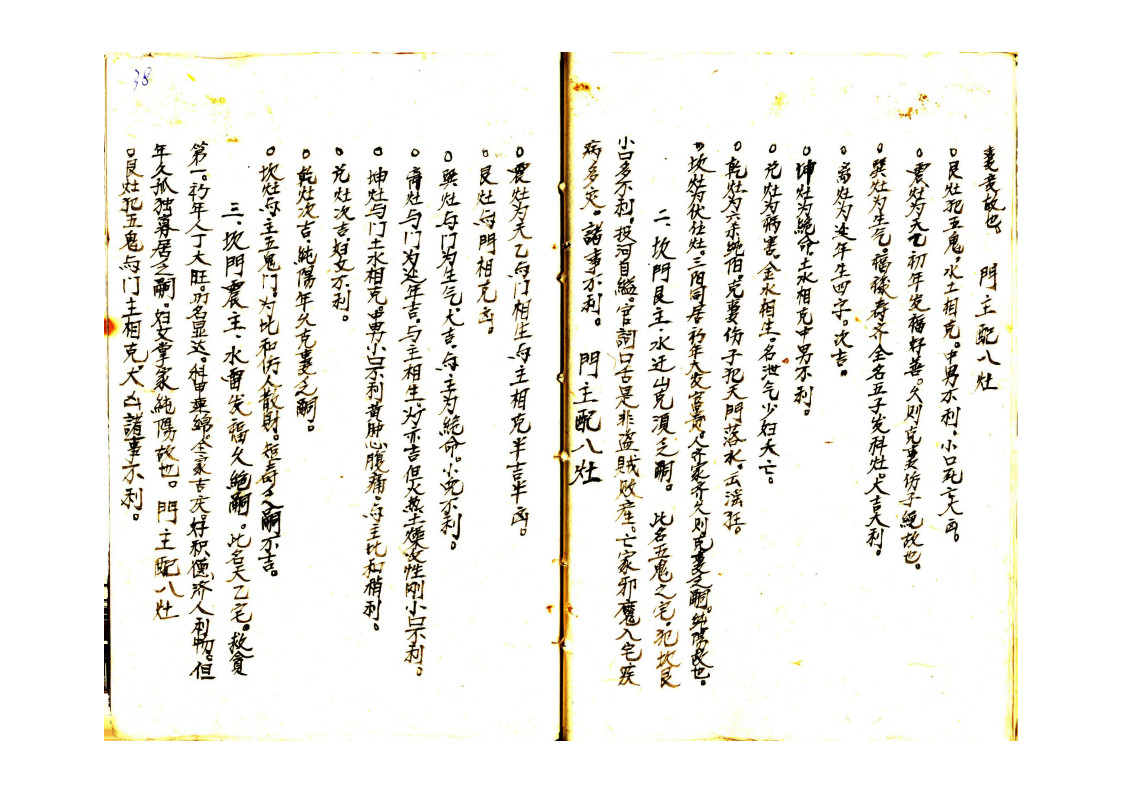 妻妾故也 門主配八灶
艮灶犯五鬼。水土相克。中男不利。小口死亡大凶。
震灶为天乙初年发福好善。久则克妻伤子绝故也。
巽灶为生气。福禄寿齐全名五子发科灶。大吉大利。
离灶为延年生四子。次吉。
坤灶为绝命。土水相克中男不利。
兑灶为祸害。金水相生。名泄气少妇夭亡。
乾灶为六杀纯阳。克妻伤子犯天門落水。云淫狂。
坎灶为伏位灶。三阳同居初年大发富贵。人齐家齐久则克妻乏嗣。纯陽故也。
二、坎門艮主、水迂山克須乏嗣。 此名五鬼之宅。犯坎艮
小口多不利。投河自縊。官詞口舌是非盜賊敗產。亡家邪魔入宅疾
病多灾。諸事不利。 門主配八灶
震灶为天乙与门相生与主相克半吉半凶。
艮灶与門相克凶。
巽灶与门为生气大吉。与主为絶命。小児不利。
离灶与门为延年吉。与主相生。为亦吉但火熱土燥女性剛小口不利。
坤灶与门土水相克。中男小口不利黄肿心腹痛。与主比和稍利。
兑灶次吉妇女不利。
乾灶次吉。純陽年久克妻乏嗣。
坎灶与主五鬼门。为比和伤人散財。短寿乏嗣不吉。
三、坎門震主、水雷发福久絕嗣。此名天乙宅。救貧
第一。初年人丁大旺。功名显达。科甲連綿全家吉庆。好积德济人利物。但
年久孤独寡居乏嗣。妇女掌家純陽故也。 門主配八灶
艮灶犯五鬼与门主相克。大凶諸事不利。
38